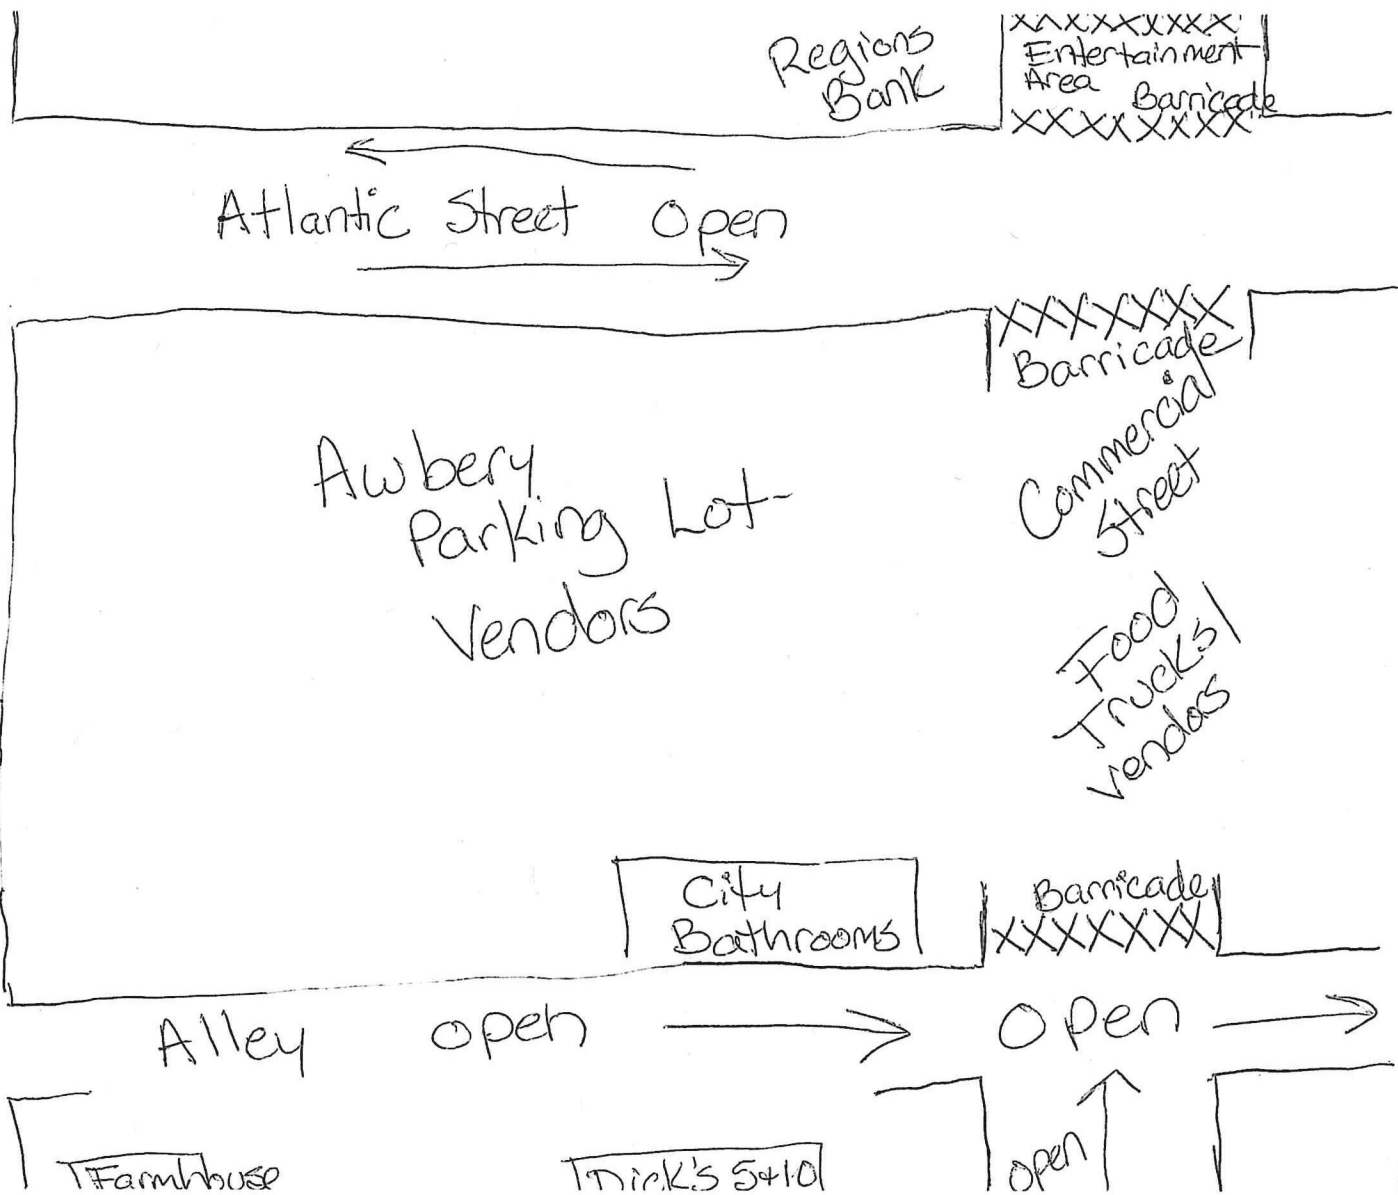 Regions
Bank
XXXXXXXXX
Entertainment
Area
Barricade
XXXXXXXX
Atlantic Street Open
XXXXXXX
Barricade
Commercial
Street
Awbery
Parking Lot-
Vendors
Food
Trucks/
Vendors
City
Bathrooms
Barricade
XXXXXXX
Alley open
Open
open
Farmhouse
Dick's 5+10